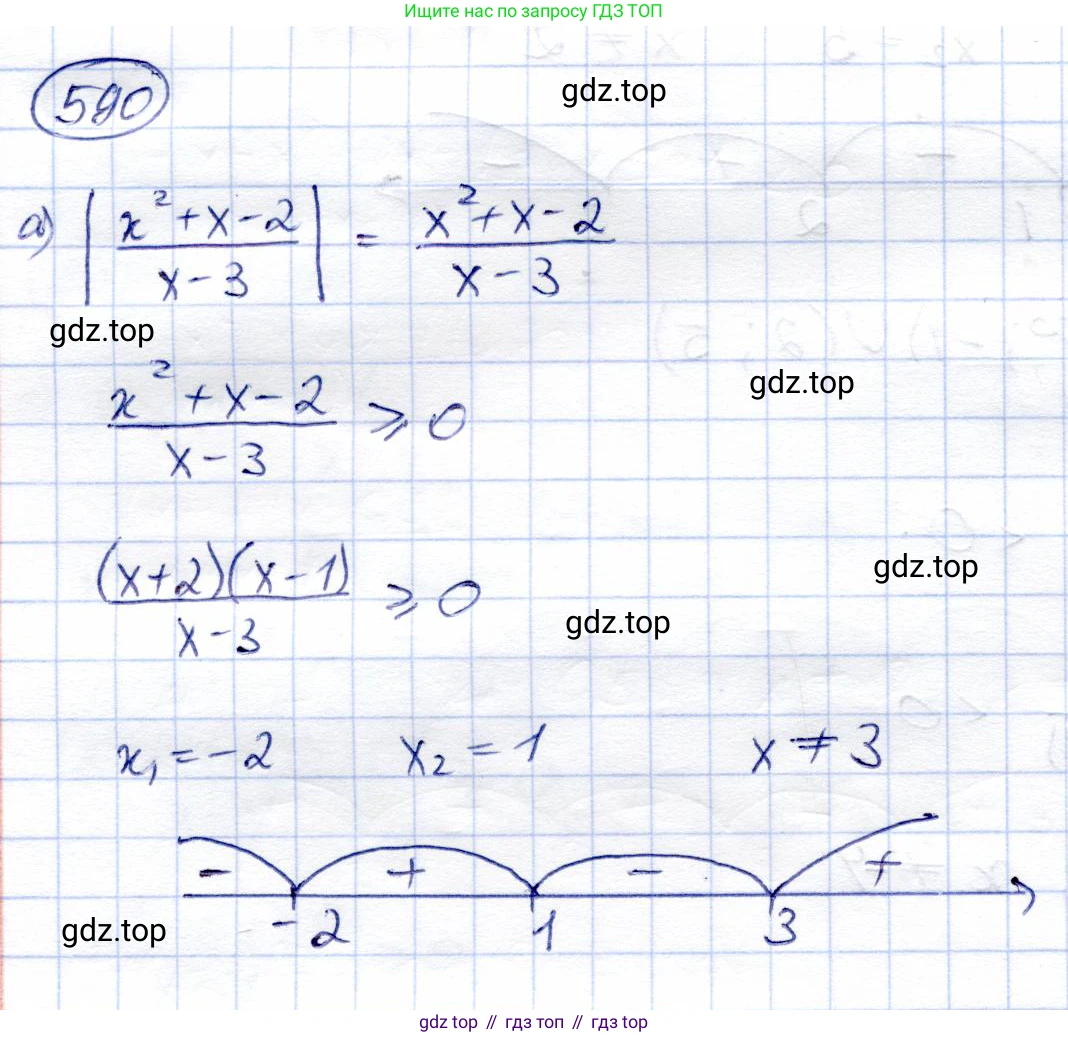 Ищите нас по запросу ГДЗ ТОП
590
gdz.top
а) |(x² + x - 2)/(x - 3)| = (x² + x - 2)/(x - 3)
gdz.top
gdz.top
(x² + x - 2)/(x - 3) ⩾ 0
gdz.top
((x+2)(x-1))/(x-3) ⩾ 0
gdz.top
x₁ = -2 x₂ = 1 x ≠ 3
- + - +
gdz.top
-2 1 3
gdz top // гдз топ // гдз top